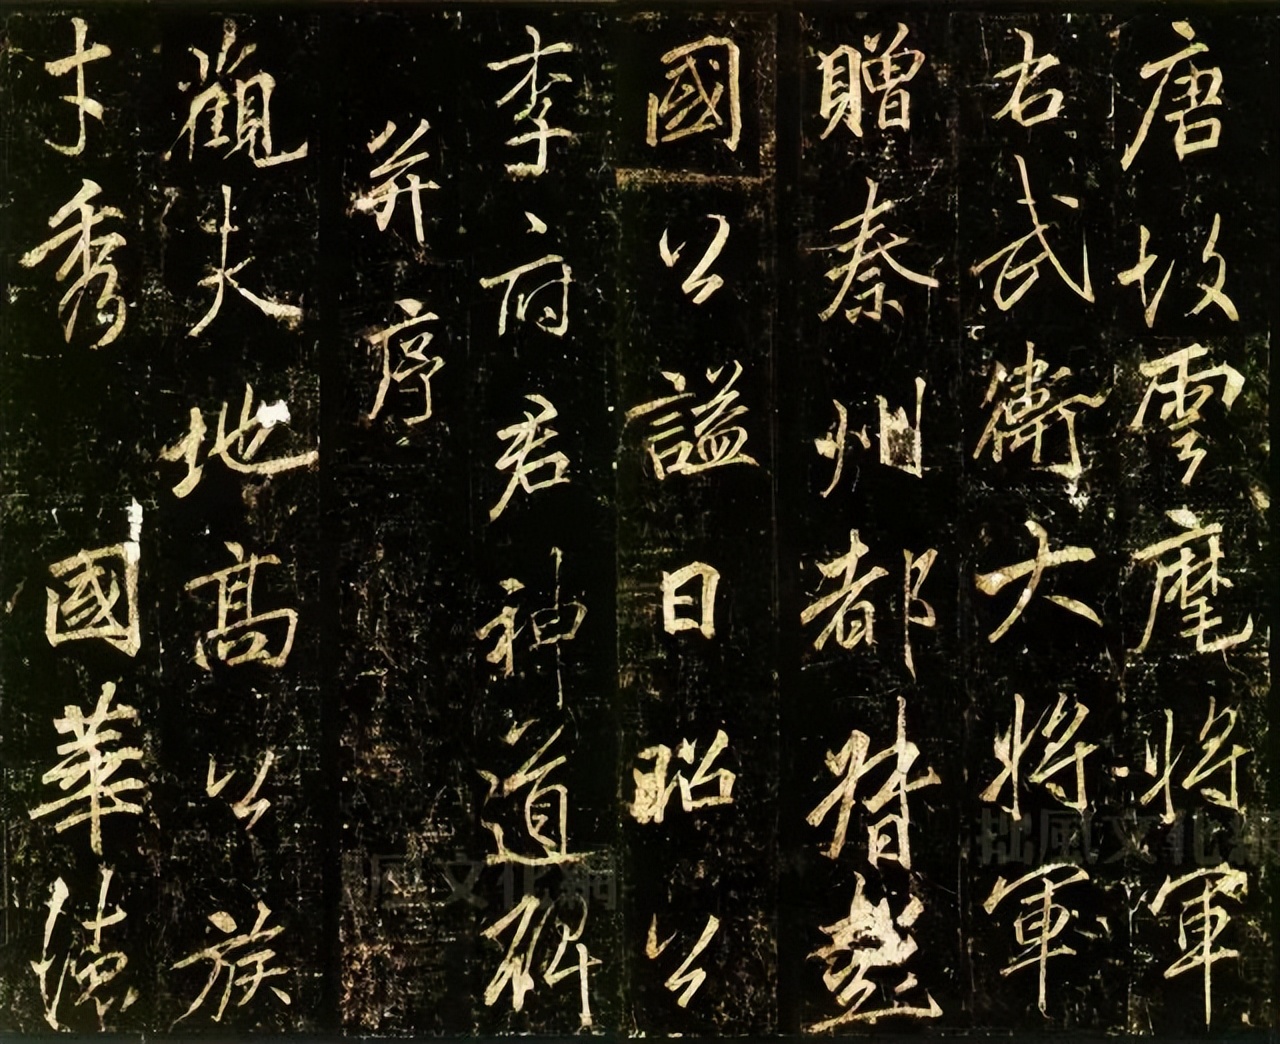 唐故雲麾將軍
右武衛大將軍
贈秦州都督彭
國公謚曰昭公
李府君神道碑
并序
觀夫地高公族
才秀國華德
拙風文化網
風文化網